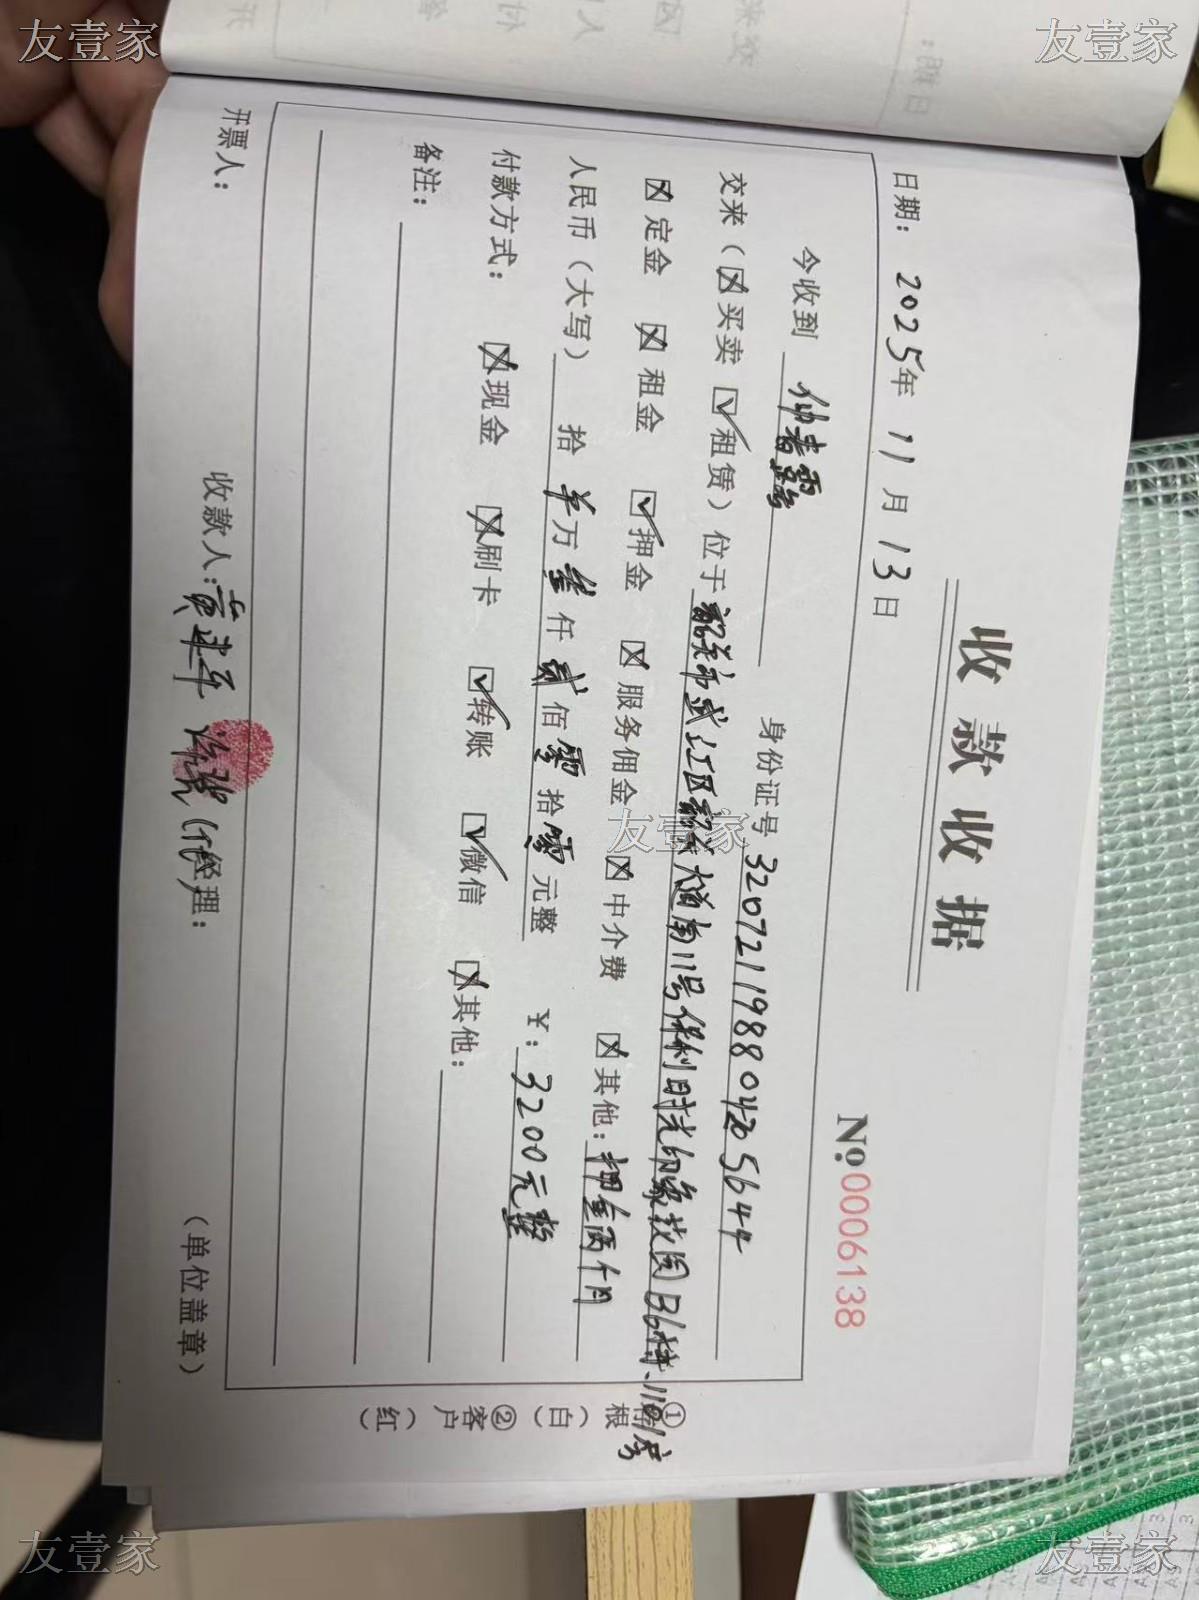 收款收据
No.0006138
日期：2025年11月13日
今收到 仲春露 身份证号 320721198804205644
交来（☒买卖 ☑租赁）位于 韶关市武江区韶关大道南11号保利时光印象花园B6栋、1101房
☒定金 ☒租金 ☑押金 ☒服务佣金 ☒中介费 ☒其他：押金两个月
人民币（大写） 拾 羊 万 叁 仟 贰 佰 零 拾 零 元整 ¥：3200元整
付款方式： ☒现金 ☒刷卡 ☑转账 ☑微信 ☒其他：
备注：
开票人： 收款人： （代经理： （单位盖章）
①存根（白）②客户（红）
友壹家
友壹家
友壹家
友壹家
友壹家